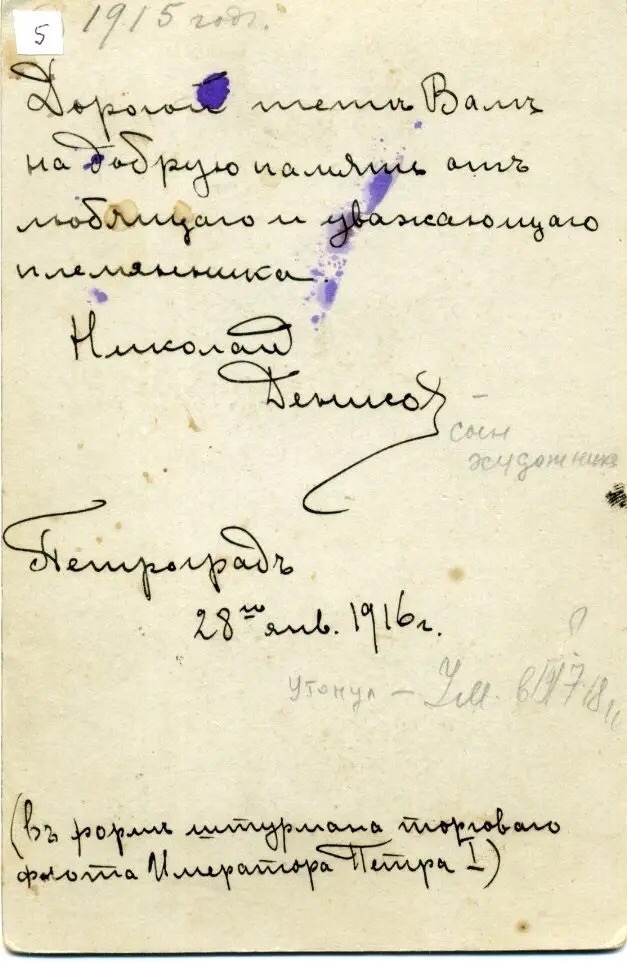 5
1915 годъ.
Дорогой тетѣ Валѣ
на добрую память отъ
любящаго и уважающаго
племянника.
Николай
Денисов –
сын
художника
Петроградъ
28го янв. 1916 г.
?
утонул – Ум. в 1917
(въ формѣ штурмана торговаго
флота Императора Петра I)